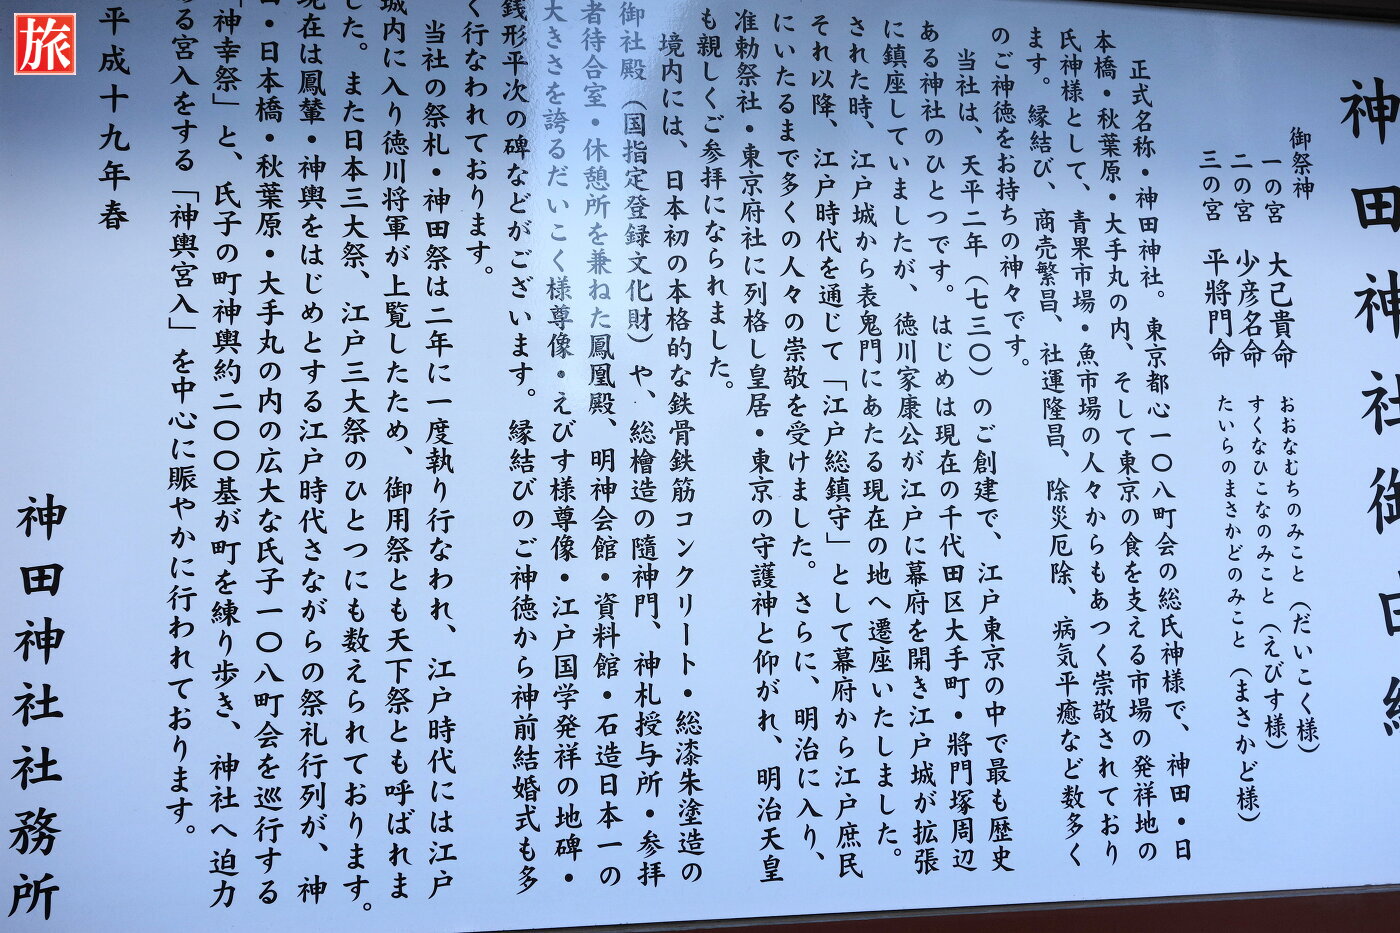 神田神社御由緒
御祭神
一の宮 大己貴命 おおなむちのみこと（だいこく様）
二の宮 少彦名命 すくなひこなのみこと（えびす様）
三の宮 平將門命 たいらのまさかどのみこと（まさかど様）
正式名称・神田神社。東京都心一〇八町会の総氏神様で、神田・日
本橋・秋葉原・大手丸の内、そして東京の食を支える市場の発祥地の
氏神様として、青果市場・魚市場の人々からもあつく崇敬されており
ます。縁結び、商売繁昌、社運隆昌、除災厄除、病気平癒など数多く
のご神徳をお持ちの神々です。
当社は、天平二年（七三〇）のご創建で、江戸東京の中で最も歴史
ある神社のひとつです。はじめは現在の千代田区大手町・將門塚周辺
に鎮座していましたが、徳川家康公が江戸に幕府を開き江戸城が拡張
された時、江戸城から表鬼門にあたる現在の地へ遷座いたしました。
それ以降、江戸時代を通じて「江戸総鎮守」として幕府から江戸庶民
にいたるまで多くの人々の崇敬を受けました。さらに、明治に入り、
准勅祭社・東京府社に列格し皇居・東京の守護神と仰がれ、明治天皇
も親しくご参拝になられました。
境内には、日本初の本格的な鉄骨鉄筋コンクリート・総漆朱塗造の
御社殿（国指定登録文化財）や、総檜造の隨神門、神札授与所・参拝
者待合室・休憩所を兼ねた鳳凰殿、明神会館・資料館・石造日本一の
大きさを誇るだいこく様尊像・えびす様尊像・江戸国学発祥の地碑・
銭形平次の碑などがございます。縁結びのご神徳から神前結婚式も多
く行なわれております。
当社の祭札・神田祭は二年に一度執り行なわれ、江戸時代には江戸
城内に入り徳川将軍が上覧したため、御用祭とも天下祭とも呼ばれま
した。また日本三大祭、江戸三大祭のひとつにも数えられております。
現在は鳳輦・神輿をはじめとする江戸時代さながらの祭礼行列が、神
田・日本橋・秋葉原・大手丸の内の広大な氏子一〇八町会を巡行する
「神幸祭」と、氏子の町神輿約二〇〇基が町を練り歩き、神社へ迫力
ある宮入をする「神輿宮入」を中心に賑やかに行われております。
平成十九年春
神田神社社務所
旅